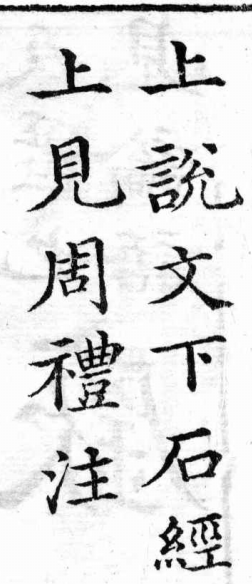 上說文下石經
上見周禮注